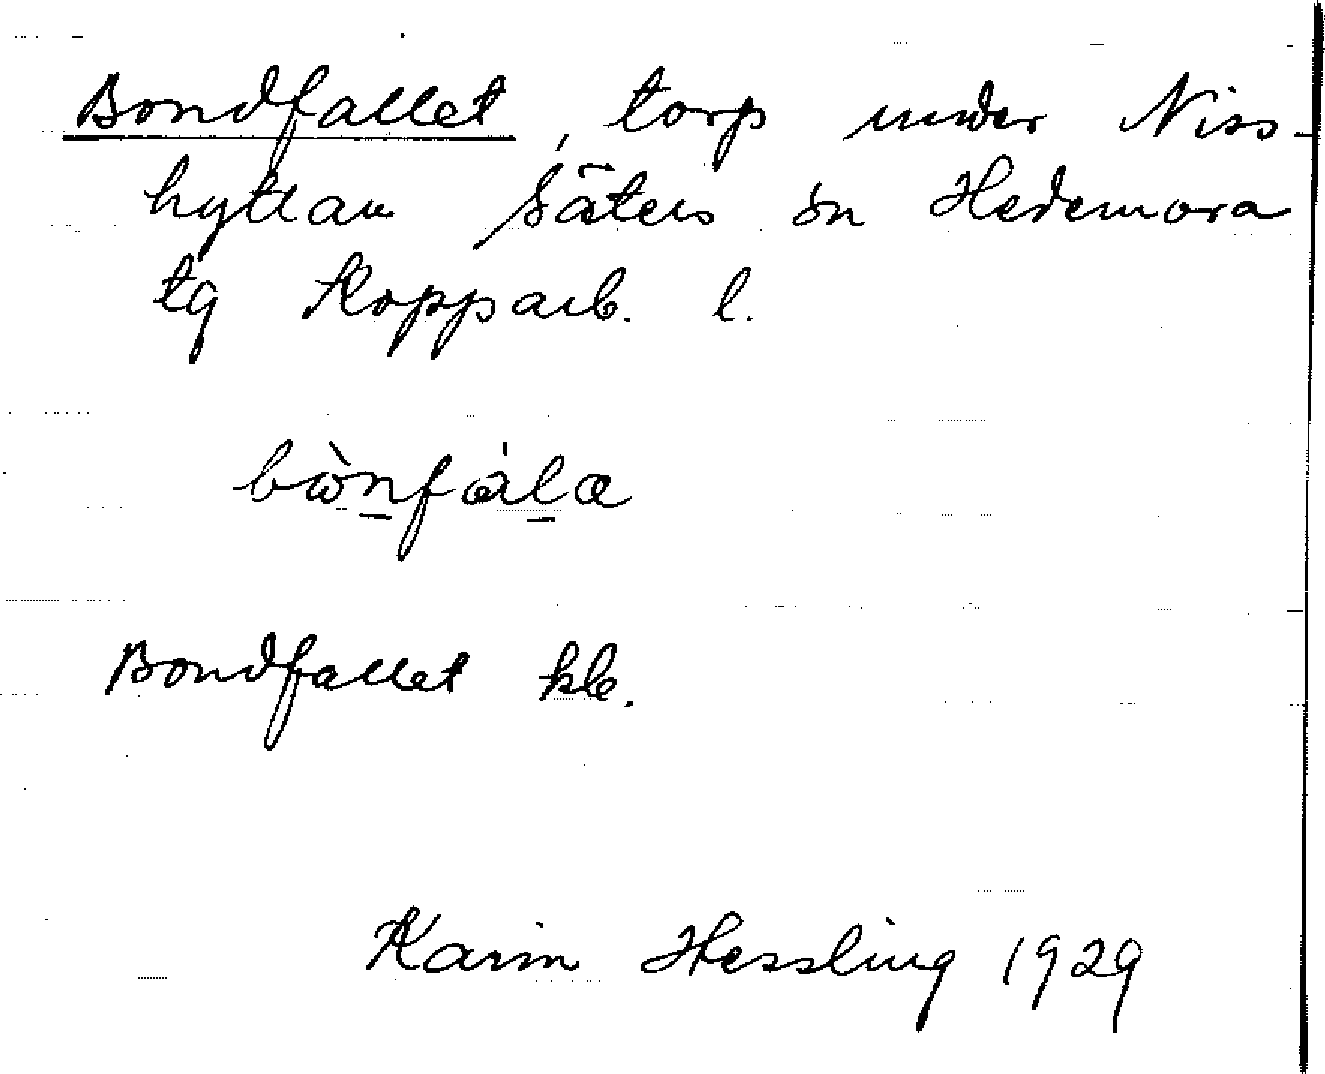 Bondfallet, torp under Niss-
hyttan Säters sn Hedemora
tg Kopparb. l.
bὼn̲fál̲a
Bondfallet kb.
Karin Hessling 1929